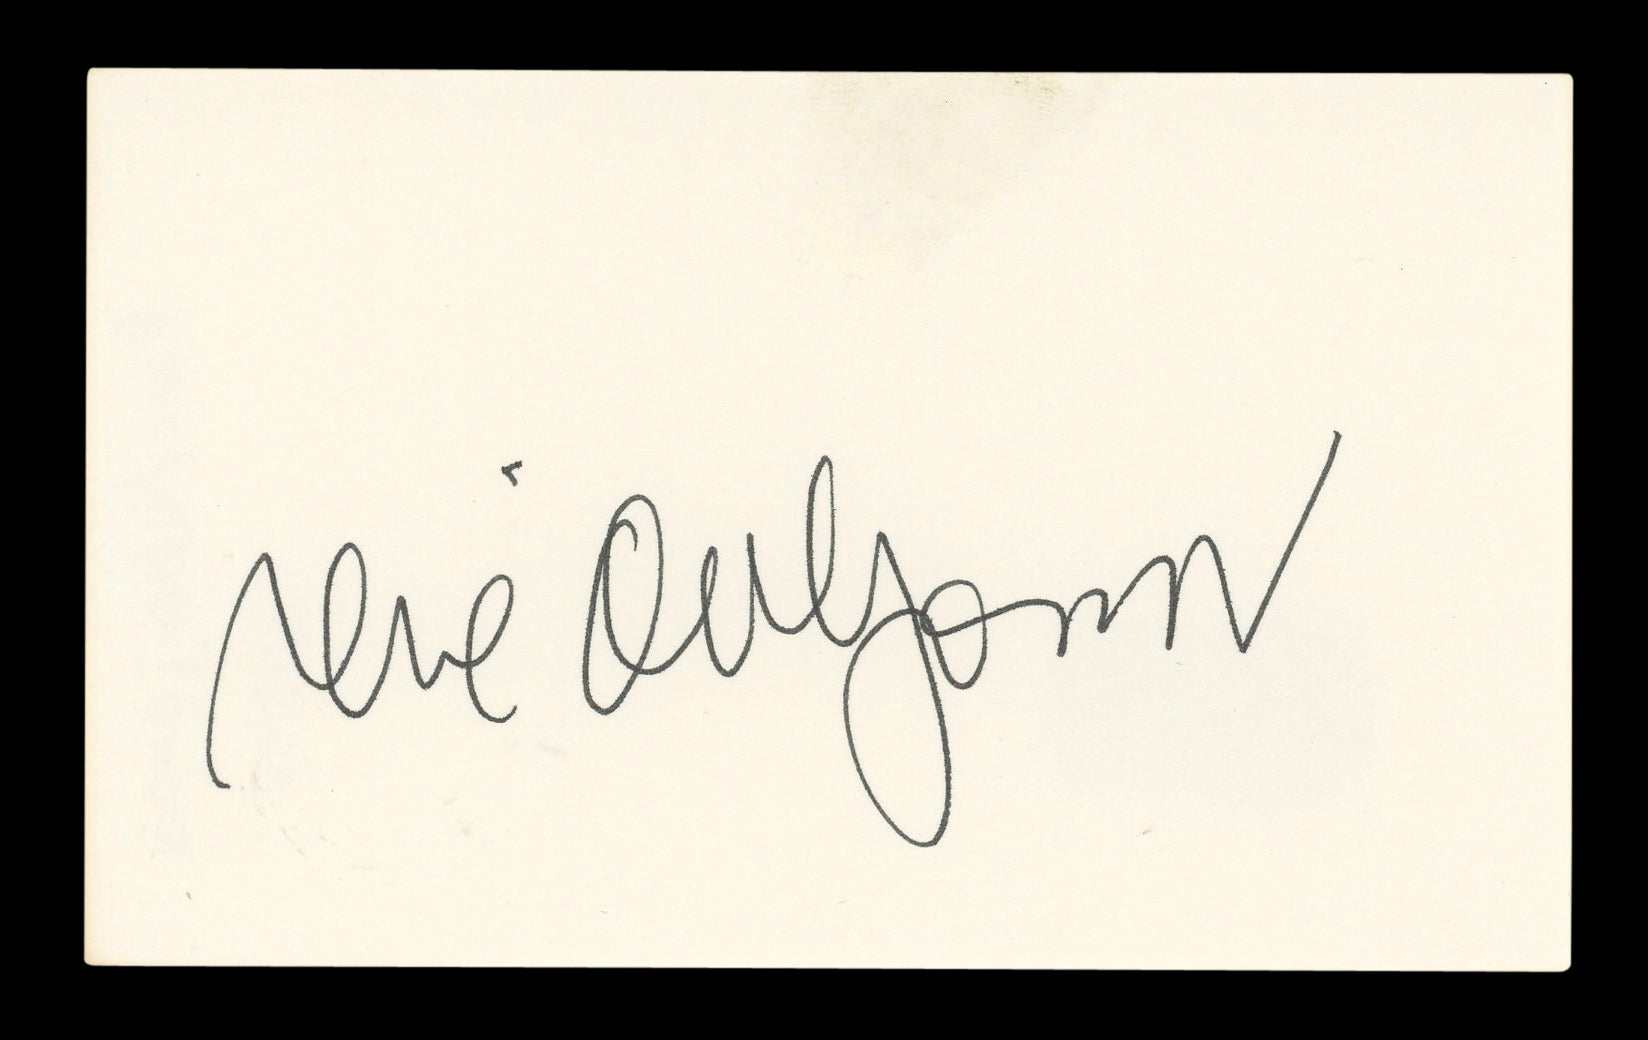 René Auberjonois